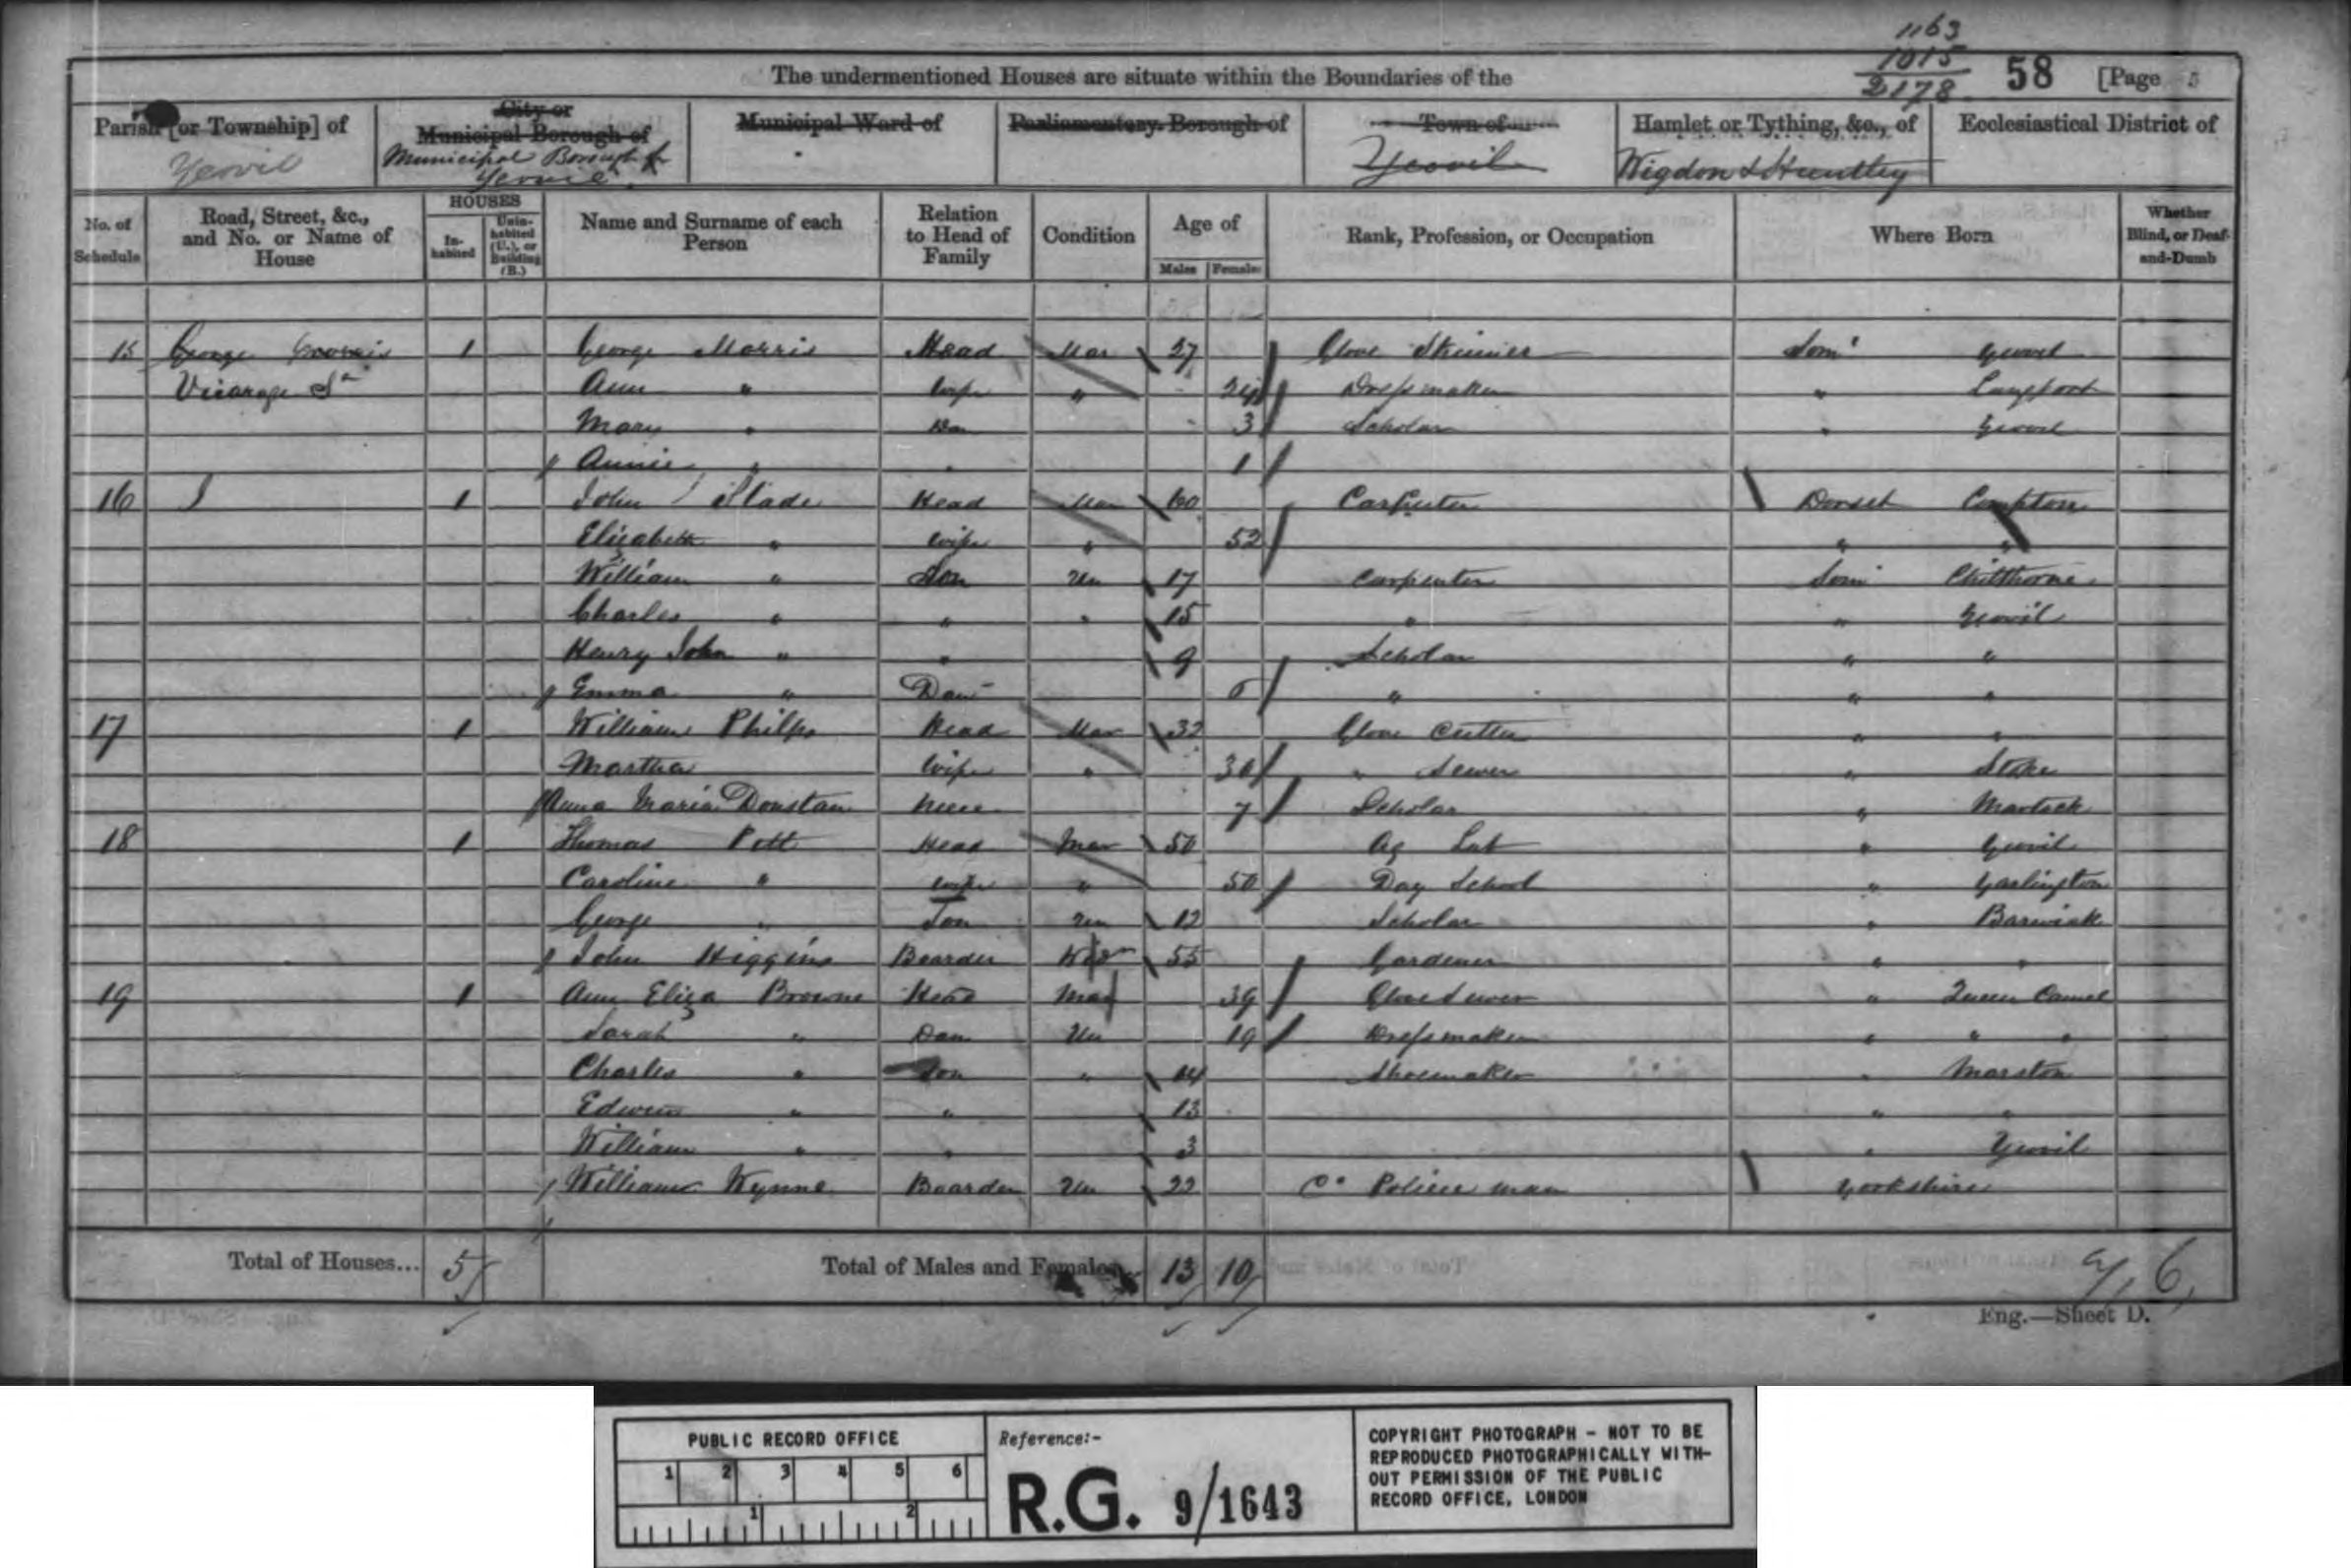 1163
1015
2178
58 [Page 5
The undermentioned Houses are situate within the Boundaries of the
Parish [or Township] of
Yeovil
City or
Municipal Borough of
Municipal Borough of
Yeovil
Municipal Ward of
Parliamentary Borough of
Town of
Yeovil
Hamlet or Tything, &c., of
Wigdon & Huntley
Ecclesiastical District of
No. of Schedule
Road, Street, &c., and No. or Name of House
HOUSES
In-habited
Unin-habited (U.), or Building (B.)
Name and Surname of each Person
Relation to Head of Family
Condition
Age of
Males Females
Rank, Profession, or Occupation
Where Born
Whether Blind, or Deaf-and-Dumb
15 George 1 George Morris Head Mar 27 Glove Skinner Som' Yeovil
Vicarage St Ann " Wife " 24 Dressmaker " Langport
Mary " Da 3 Scholar " Yeovil
Annie " " 1
16 1 John Slade Head Mar 60 Carpenter Dorset Compton
Elizabeth " Wife " 52 " "
William " Son Un 17 Carpenter Som' Chilthorne
Charles " " " 15 " " Yeovil
Henry John " " 9 Scholar " "
Emma " Dau " " "
17 1 William Philps Head Mar 32 Glove Cutter " "
Martha Wife " 30 " Sewer " Stoke
Anna Maria Donstan Niece 7 Scholar " Martock
18 1 Thomas Pott Head Mar 50 Ag Lab " Yeovil
Caroline " Wife " 50 Day School " Yarlington
George " Son Un 12 Scholar " Barwick
John Higgins Boarder Wid 55 Gardener " "
19 1 Ann Eliza Browne Head Mar 39 Glove Sewer " Queen Camel
Sarah " Dau Un 19 Dressmaker " " "
Charles " Son " 14 Shoemaker " Marston
Edwin " " 13 " "
William " " 3 " Yeovil
William Wynne Boarder Un 22 Co Police man Yorkshire
Total of Houses... 5 Total of Males and Females... 13 10
6
Eng.—Sheet D.
PUBLIC RECORD OFFICE
1 2 3 4 5 6
1 2
Reference:-
R.G. 9/1643
COPYRIGHT PHOTOGRAPH - NOT TO BE
REPRODUCED PHOTOGRAPHICALLY WITH-
OUT PERMISSION OF THE PUBLIC
RECORD OFFICE, LONDON